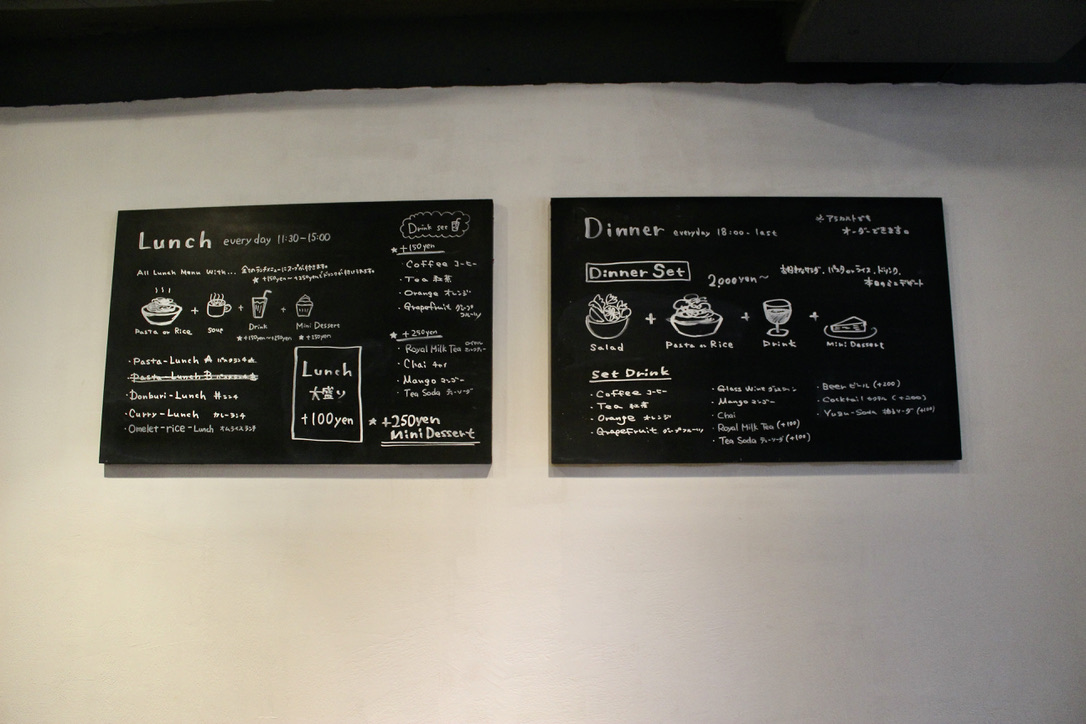 Lunch everyday 11:30-15:00
All Lunch Menu With... 全てのランチメニューにスープが付きます。
★ +150yen~+250yenでドリンクが付けられます。
Pasta or Rice + soup + Drink + Mini Dessert
★+150yen~+250yen ★+250yen
・Pasta-Lunch A パスタランチA
・Pasta-Lunch B
・Donburi-Lunch 丼ランチ
・Curry-Lunch カレーランチ
・Omelet-rice-Lunch オムライスランチ
Lunch
大盛り
+100yen
Drink set
★+150yen
・Coffee コーヒー
・Tea 紅茶
・Orange オレンジ
・Grapefruit グレープフルーツ
★+250yen
・Royal Milk Tea ロイヤルミルクティー
・Chai チャイ
・Mango マンゴー
・Tea Soda ティーソーダ
★+250yen
Mini Dessert
Dinner everyday 18:00-last
アラカルトでも
オーダーできます。
Dinner Set 2,000yen~
本日のミニデザート
Salad + Pasta or Rice + Drink + Mini Dessert
Set Drink
・Coffee コーヒー
・Tea 紅茶
・Orange オレンジ
・Grapefruit グレープフルーツ
・Glass Wine グラスワイン
・Mango マンゴー
・Chai
・Royal Milk Tea (+100)
・Tea Soda ティーソーダ (+100)
・Beer ビール (+200)
・Cocktail カクテル (+200)
・Yuzu-Soda ゆずソーダ (+100)